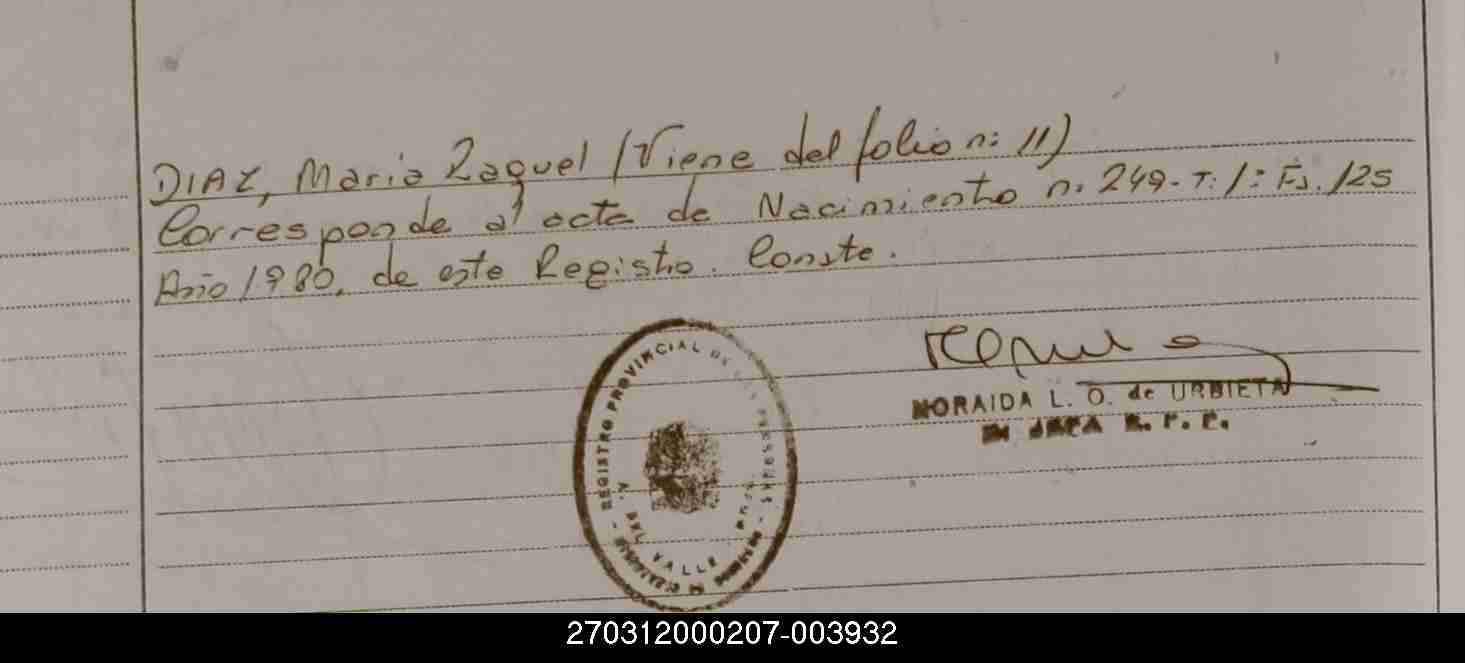 DIAZ, Maria Raquel (Viene del folio n: 11)
Corresponde al acta de Nacimiento n: 249- T: 1: Fs. 125
Año 1980, de este Registro. Conste.
REGISTRO PROVINCIAL DE LAS PERSONAS
DEL VALLE
NORAIDA L. O. de URBIETA
JEFA R. P. P.
270312000207-003932